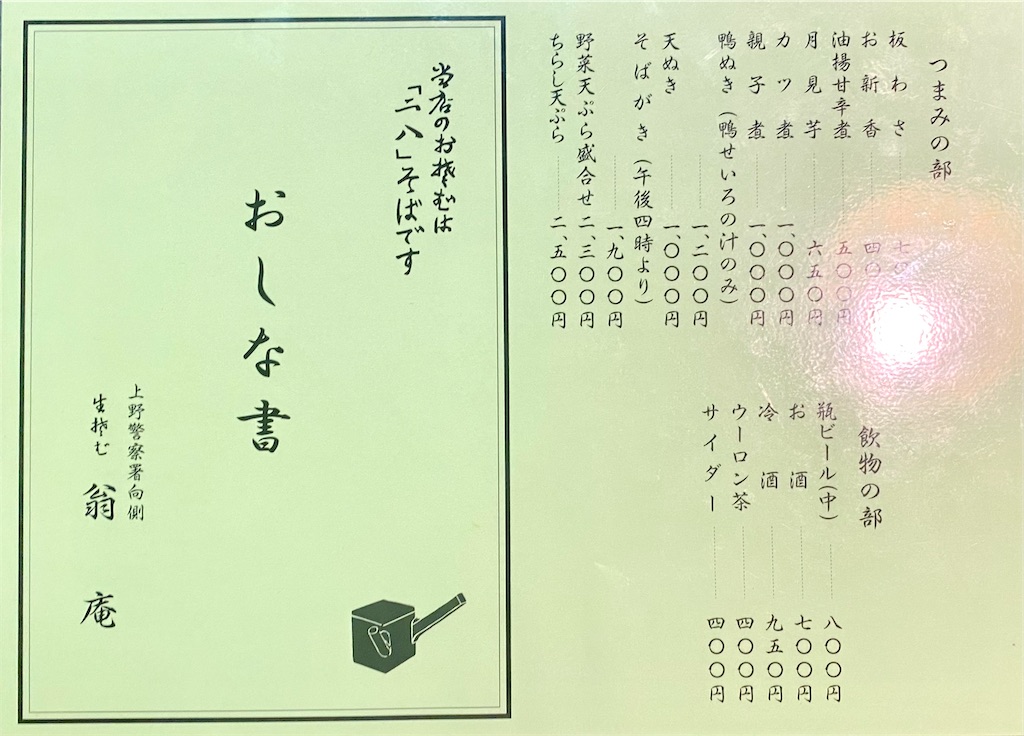 つまみの部
板わさ
お新香
油揚甘辛煮 五〇〇円
月見芋 六五〇円
カツ煮 一、〇〇〇円
親子煮 一、〇〇〇円
鴨ぬき(鴨せいろの汁のみ)
一、二〇〇円
天ぬき 一、〇〇〇円
そばがき(午後四時より)
一、九〇〇円
野菜天ぷら盛合せ 二、三〇〇円
ちらし天ぷら 二、五〇〇円
飲物の部
瓶ビール(中) 八〇〇円
お酒 七〇〇円
冷酒 九五〇円
ウーロン茶 四〇〇円
サイダー 四〇〇円
当店のおそばは
「二八」そばです
おしな書
上野警察署向側
生そば 翁庵